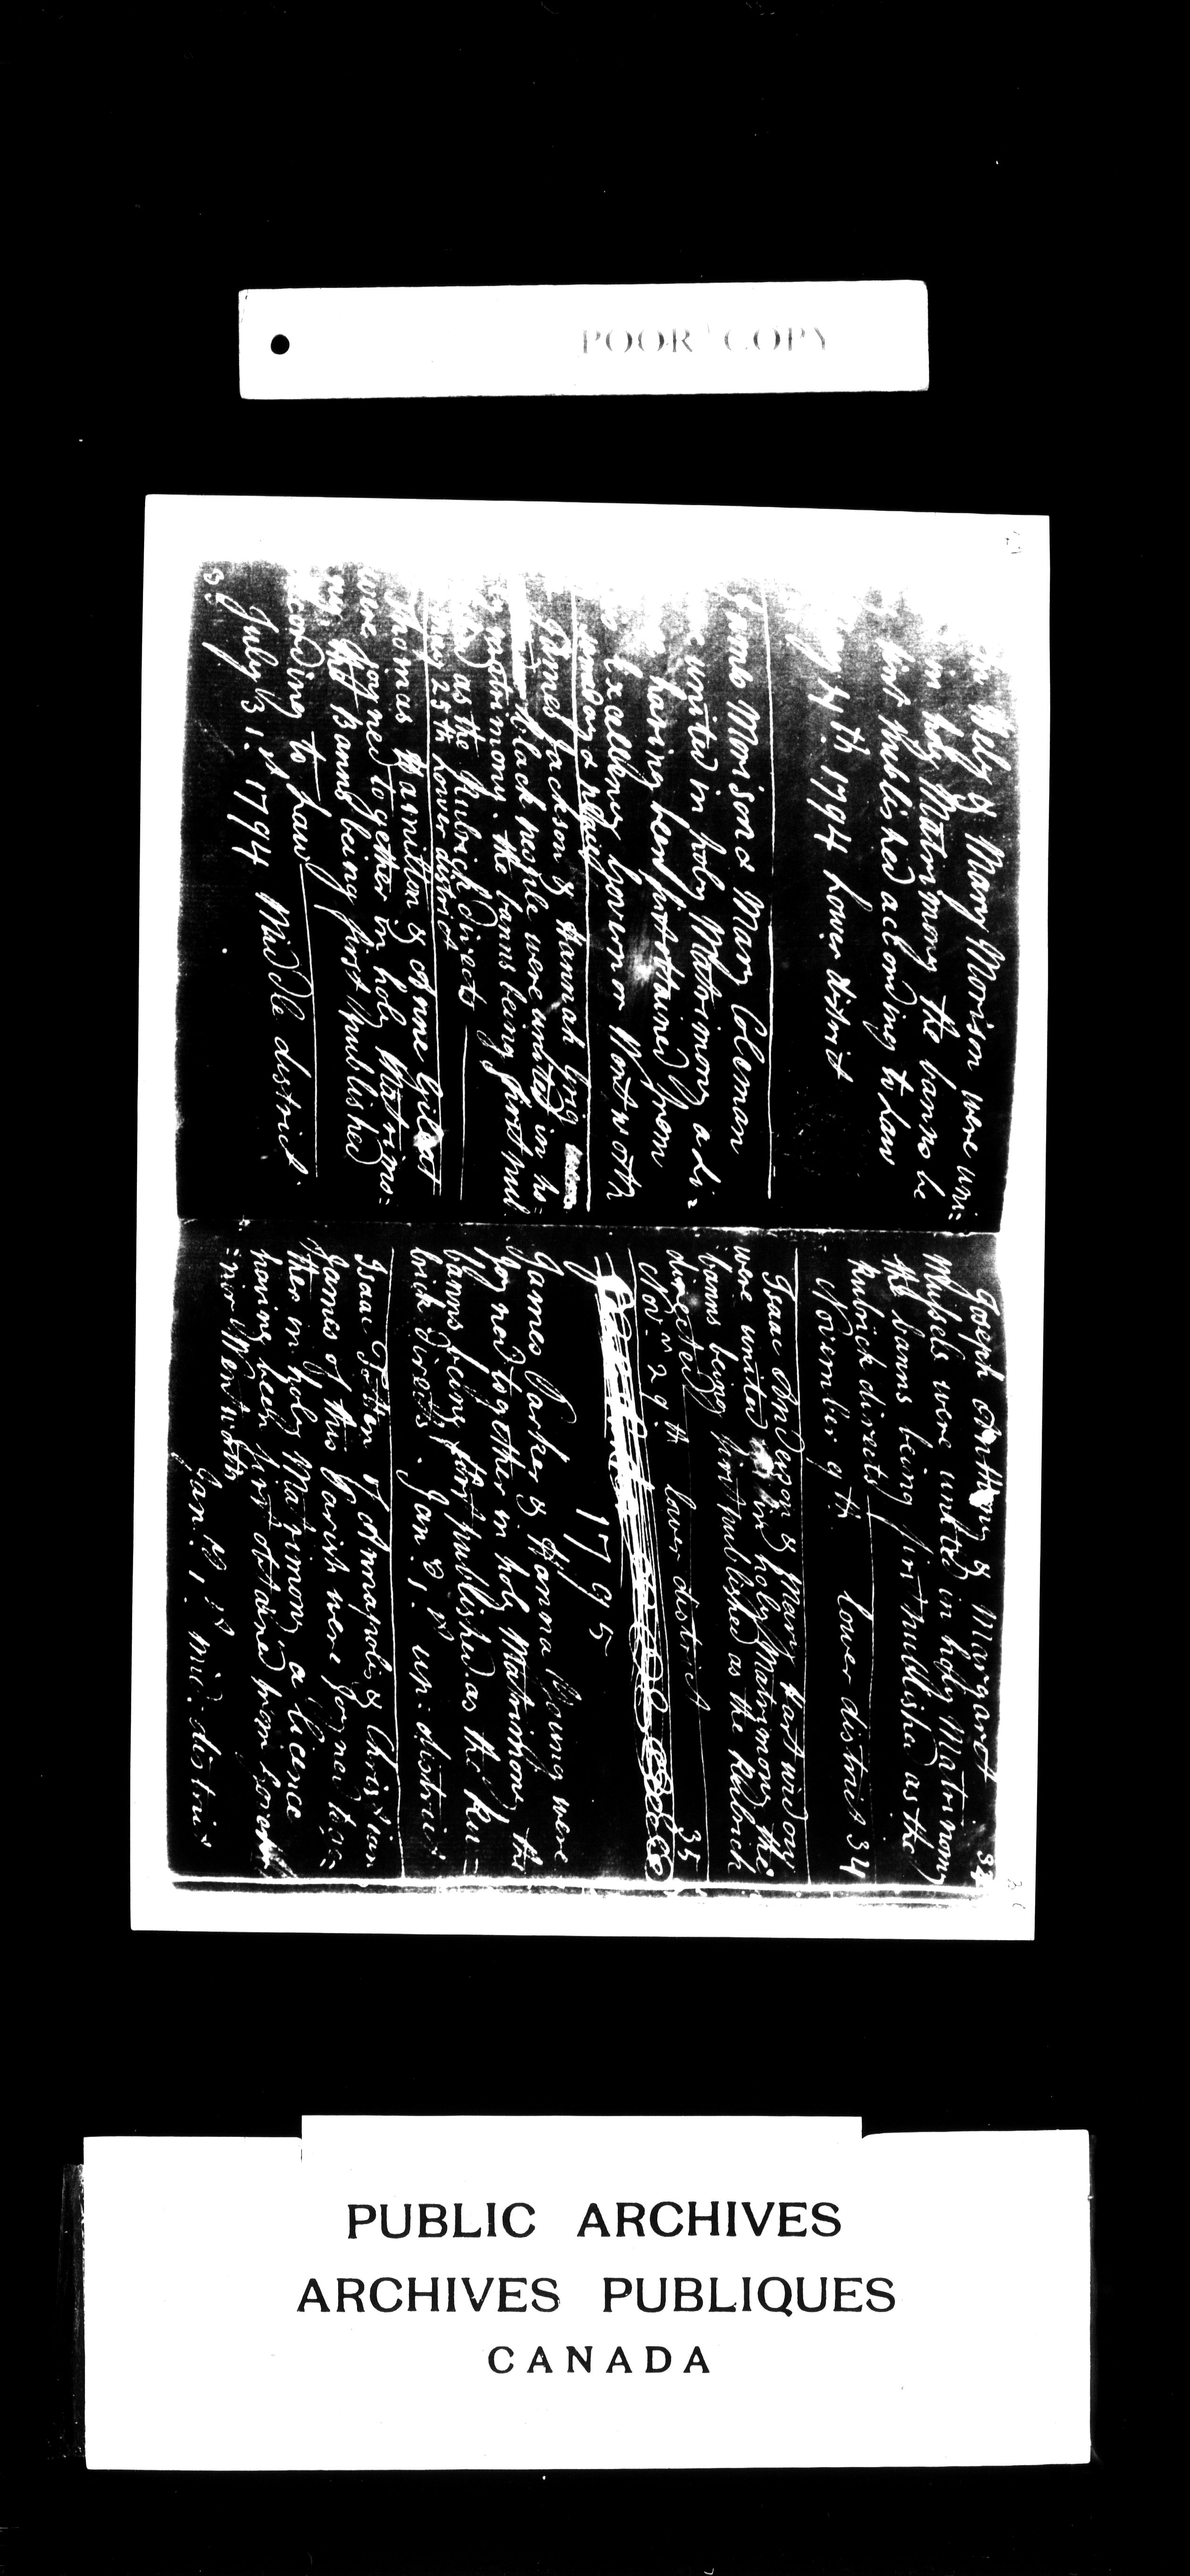 POOR COPY
Wely & Mary Morison were uni=
in holy Matrimony the banns be
first published according to Law
4th 1794 Lower district
Morison & Mary Coleman
united in holy Matrimony a li=
having been first obtained from
Excellency Governor Wentworth
James Jackson & Hannah
black people were united in ho=
matrimony. the banns being first pub
as the Rubrick directs
May 25th Lower district
Thomas Hamilton & Anne Gilbert
were joyned together in holy Matrimo=
the Banns being first published
according to Law
July 31st 1794 Middle district.
Joseph Anthony & Margaret
Mussels were united in holy Matrimony
the banns being first published as the
Rubrick directs
November 9th lower district 34
Isaac Anderson & Mary Hart widow
were united in holy Matrimony the
banns being first published as the Rubrick
directed
Nov. 29th lower district 35
1795
James Parker & Hanna Young were
Joyned together in holy Matrimony the
banns being first published as the Ru=
brick directs. Jan. 1st up. district
Isaac of Annapolis & Christian
James of this Parish were Joyned toge=
ther in holy Matrimony a licence
having been first obtained from Gover
=nor Wentworth
Jan. mid. district
PUBLIC ARCHIVES
ARCHIVES PUBLIQUES
CANADA